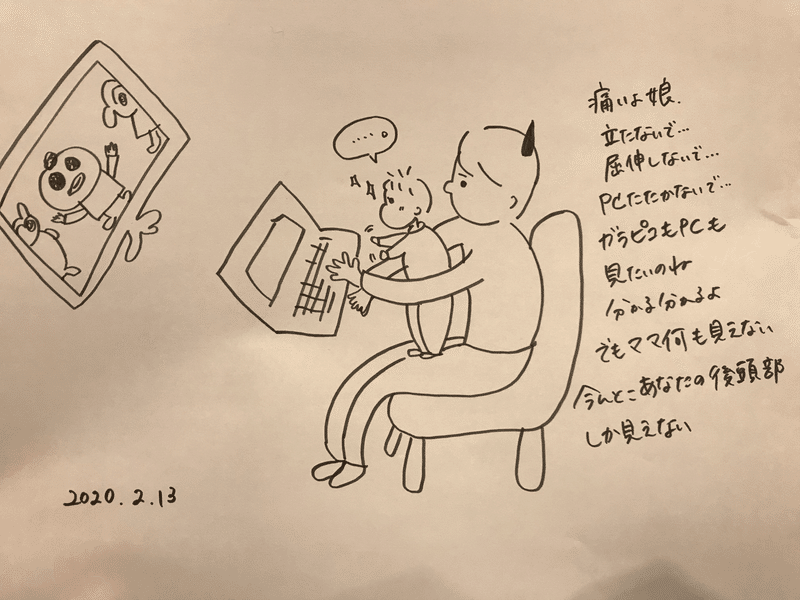 痛いよ娘.
立たないで…
屈伸しないで…
PCたたかないで…
ガラピコもPCも
見たいのね
分かる分かるよ
でもママ何も見えない
今んとこあなたの後頭部
しか見えない
.....。
2020.2.13